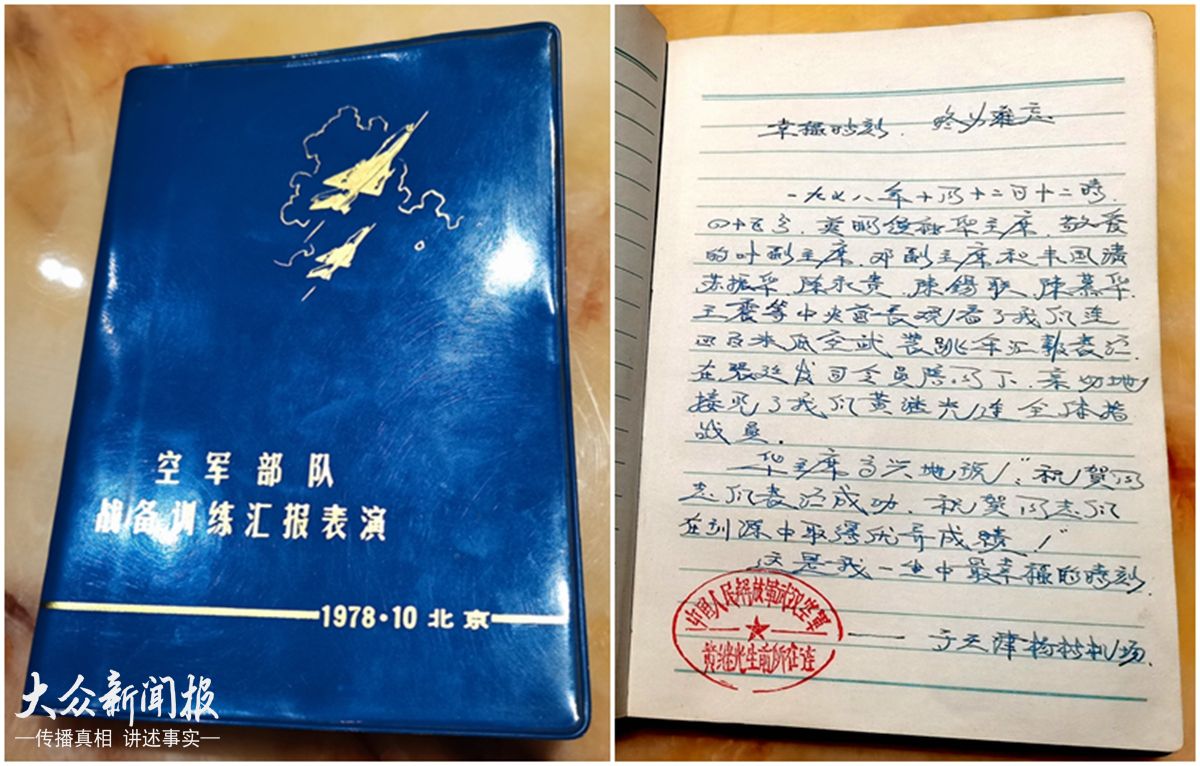 空军部队
战备训练汇报表演
1978·10 北京
大众新闻报
传播真相 讲述事实
幸福时刻.终身难忘
一九七八年十月十二日十二时
四十五分,英明领袖华主席.敬爱
的叶副主席.邓副主席和韦国清
苏振华.陈永贵.陈锡联.陈慕华.
王震等中央首长观看了我们连
四百米低空武装跳伞汇报表演.
在张廷发司令员陪同下.亲切地
接见了我们黄继光连全体指
战员.
华主席高兴地说:“祝贺同
志们表演成功.祝贺同志们
在训练中取得优异成绩!”
这是我一生中最幸福的时刻.
——于天津杨村机场.
中国人民解放军武汉空军
黄继光生前所在连